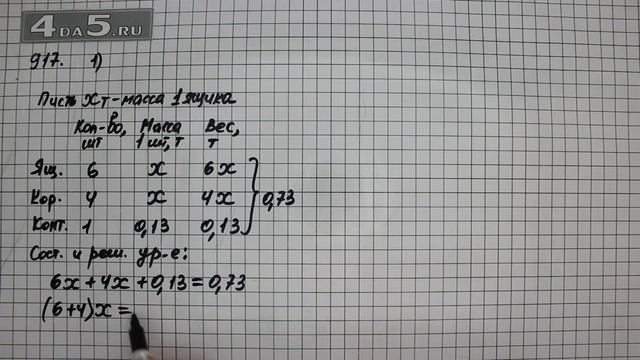 4DA5.RU
917. 1)
Пусть xт-масса 1 ящика
Кол-во, шт Масса 1 шт, т Вес, т
Ящ. 6 x 6x
Кор. 4 x 4x } 0,73
Конт. 1 0,13 0,13
Сост. и реш. ур-е:
6x+4x+0,13=0,73
(6+4)x=